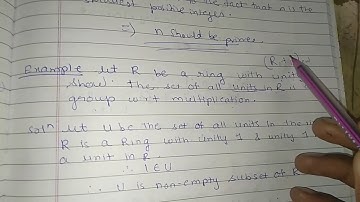 smallest positive integer.
=) n should be prime.
Example Let R be a ring with unit
Show: the set of all units in R is
group w.r.t multiplication.
Soln Let U be the set of all units in the
R is a Ring with unity 1 & unity 1
a unit in R
∴ 1 ∈ U
∴ U is non-empty subset of R